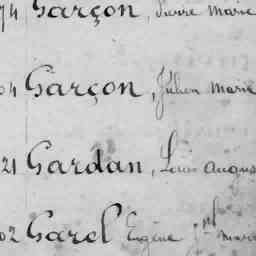 74 Garçon, Pierre Marie
04 Garçon, Julien Marie
21 Gardan, Louis Augus
02 Garel Eugène Jph Marie